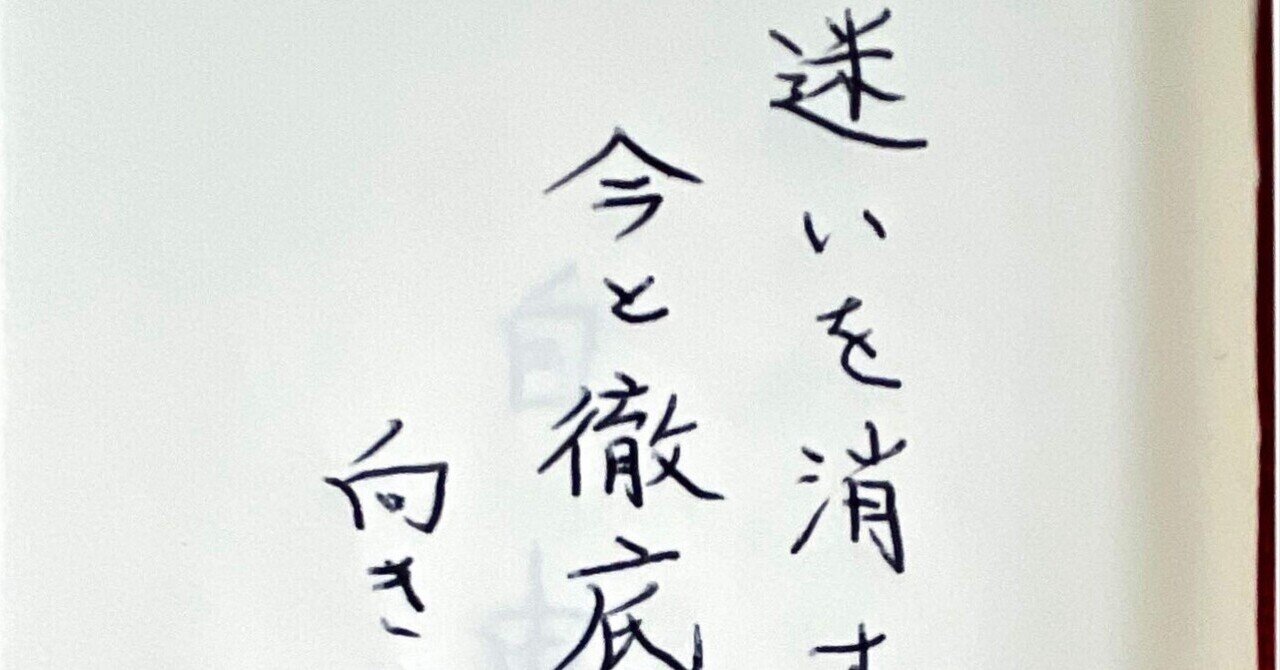 迷いを消す
今と徹底
向き